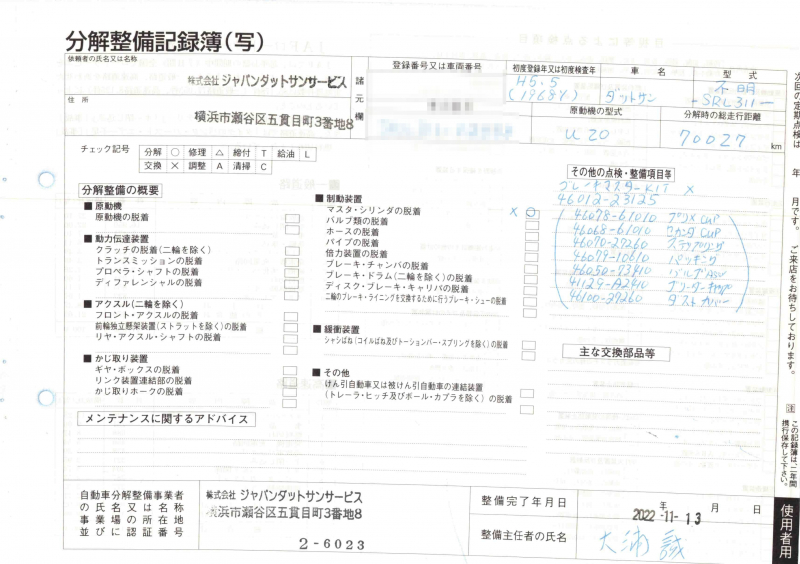 分解整備記録簿(写)
依頼者の氏名又は名称
株式会社 ジャパンダットサンサービス
住所
横浜市瀬谷区五貫目町3番地8
諸元欄
登録番号又は車両番号
初度登録年又は初度検査年
H5.5
(1968Y)
車名
ダットサン
型式
不明
-SRL311-
原動機の型式
U20
分解時の総走行距離
70027 km
チェック記号
分解 ○ 修理 △ 締付 T 給油 L
交換 × 調整 A 清掃 C
分解整備の概要
■ 原動機
原動機の脱着
■ 動力伝達装置
クラッチの脱着(二輪を除く)
トランスミッションの脱着
プロペラ・シャフトの脱着
ディファレンシャルの脱着
■ アクスル(二輪を除く)
フロント・アクスルの脱着
前輪独立懸架装置(ストラットを除く)の脱着
リヤ・アクスル・シャフトの脱着
■ かじ取り装置
ギヤ・ボックスの脱着
リンク装置連結部の脱着
かじ取りホークの脱着
■ 制動装置
マスタ・シリンダの脱着 × ○
バルブ類の脱着
ホースの脱着
パイプの脱着
倍力装置の脱着
ブレーキ・チャンバの脱着
ブレーキ・ドラム(二輪を除く)の脱着
ディスク・ブレーキ・キャリパの脱着
二輪のブレーキ・ライニングを交換するために行うブレーキ・シューの脱着
■ 緩衝装置
シャシばね(コイルばね及びトーションバー・スプリングを除く)の脱着
■ その他
けん引自動車又は被けん引自動車の連結装置
(トレーラ・ヒッチ及びボール・カプラを除く)の脱着
その他の点検・整備項目等
ブレーキマスターKIT ×
46012-23125
46078-61010 プライマリCUP
46068-61010 セカンダリCUP
46070-29260 ストップリング
46079-10610 パッキング
46050-73410 バルブASSY
41129-A2410 ブリーダーキャップ
46100-29260 ダストカバー
主な交換部品等
メンテナンスに関するアドバイス
自動車分解整備事業者
の氏名又は名称
事業場の所在地
並びに認証番号
株式会社 ジャパンダットサンサービス
横浜市瀬谷区五貫目町3番地8
2-6023
整備完了年月日
年 月 日
2022-11-13
整備主任者の氏名
大浦 誠
次回の定期点検は
年
月です。
ご来店をお待ちしております。
注 この記録簿は、二年間
携行保存して下さい。
使用者用